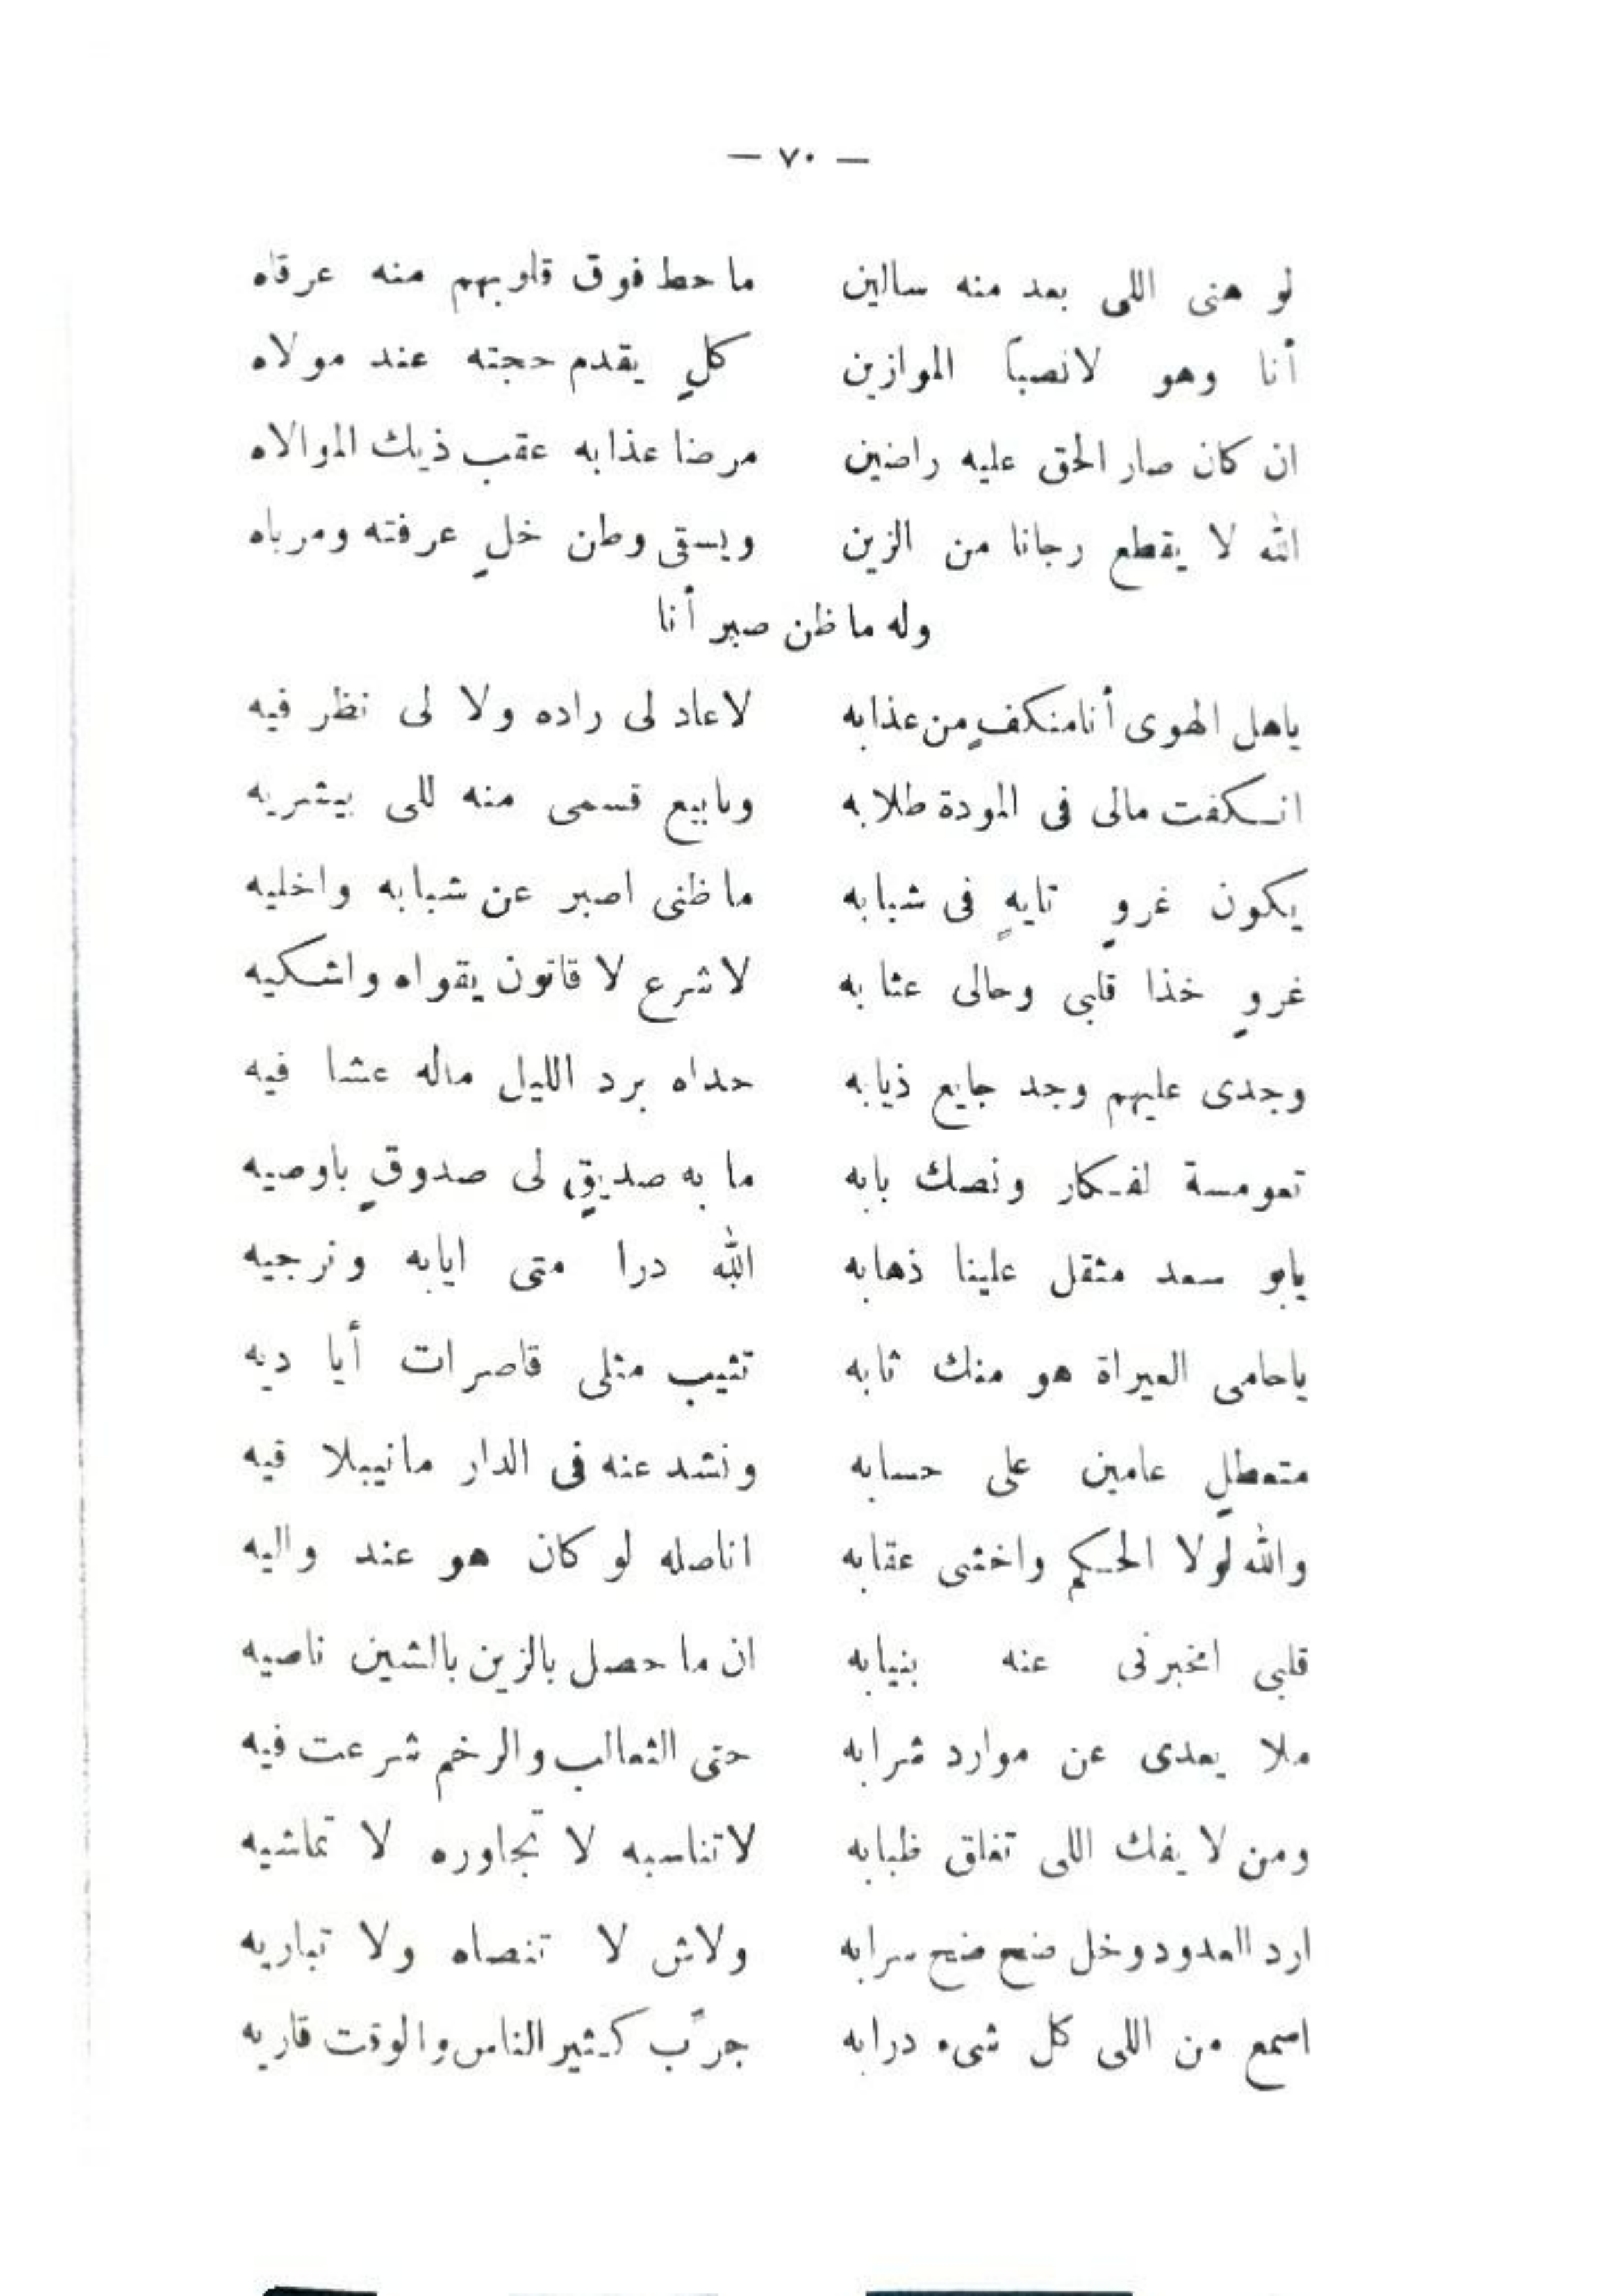 — ٧٠ —
لو هنى اللى بعد منه سالين ما حط فوق قلوبهم منه عرقاه
أنا وهو لانصباً الموازين كلٍ يقدم حجته عند مولاه
ان كان صار الحق عليه راضين مرضا عذابه عقب ذيك الموالاه
الله لا يقطع رجانا من الزين ويسقى وطن خلٍ عرفته ومرباه
وله ما ظن صبر أنا
ياهل الهوى أنامنكفٍ من عذابه لاعاد لى راده ولا لى نظر فيه
انكفت مالى فى المودة طلابه وبابيع قسمى منه للى بيشريه
يكون غروٍ تايهٍ فى شبابه ما ظنى اصبر عن شبابه واخليه
غروٍ خذا قلبى وحالى عثا به لا شرع لا قانون يقواه واشكيه
وجدى عليهم وجد جايع ذيابه حداه برد الليل ماله عشا فيه
تعومسة لفكار ونصك بابه ما به صديقٍ لى صدوقٍ باوصيه
يابو سعد مثقل علينا ذهابه الله درا متى ايابه ونرجيه
ياحامى العيراة هو منك ثابه تثيب مثلى قاصرات أيا ديه
متعطلٍ عامين على حسابه ونشد عنه فى الدار مانيبلا فيه
والله لولا الحكم واخشى عقابه اناصله لو كان هو عند واليه
قلبى امخبرنى عنه بنيابه ان ما حصل بالزين بالشين ناصيه
ملا يعدى عن موارد شرابه حتى الثعالب والرخم شرعت فيه
ومن لا يفك اللى تفلق ظبابه لاتناسبه لا تجاوره لا تماشيه
ارد العدود وخل ضح ضح سرابه ولاش لا تنصاه ولا تباريه
اسمع من اللى كل شىء درابه جرّب كثير الناس والوقت قاريه